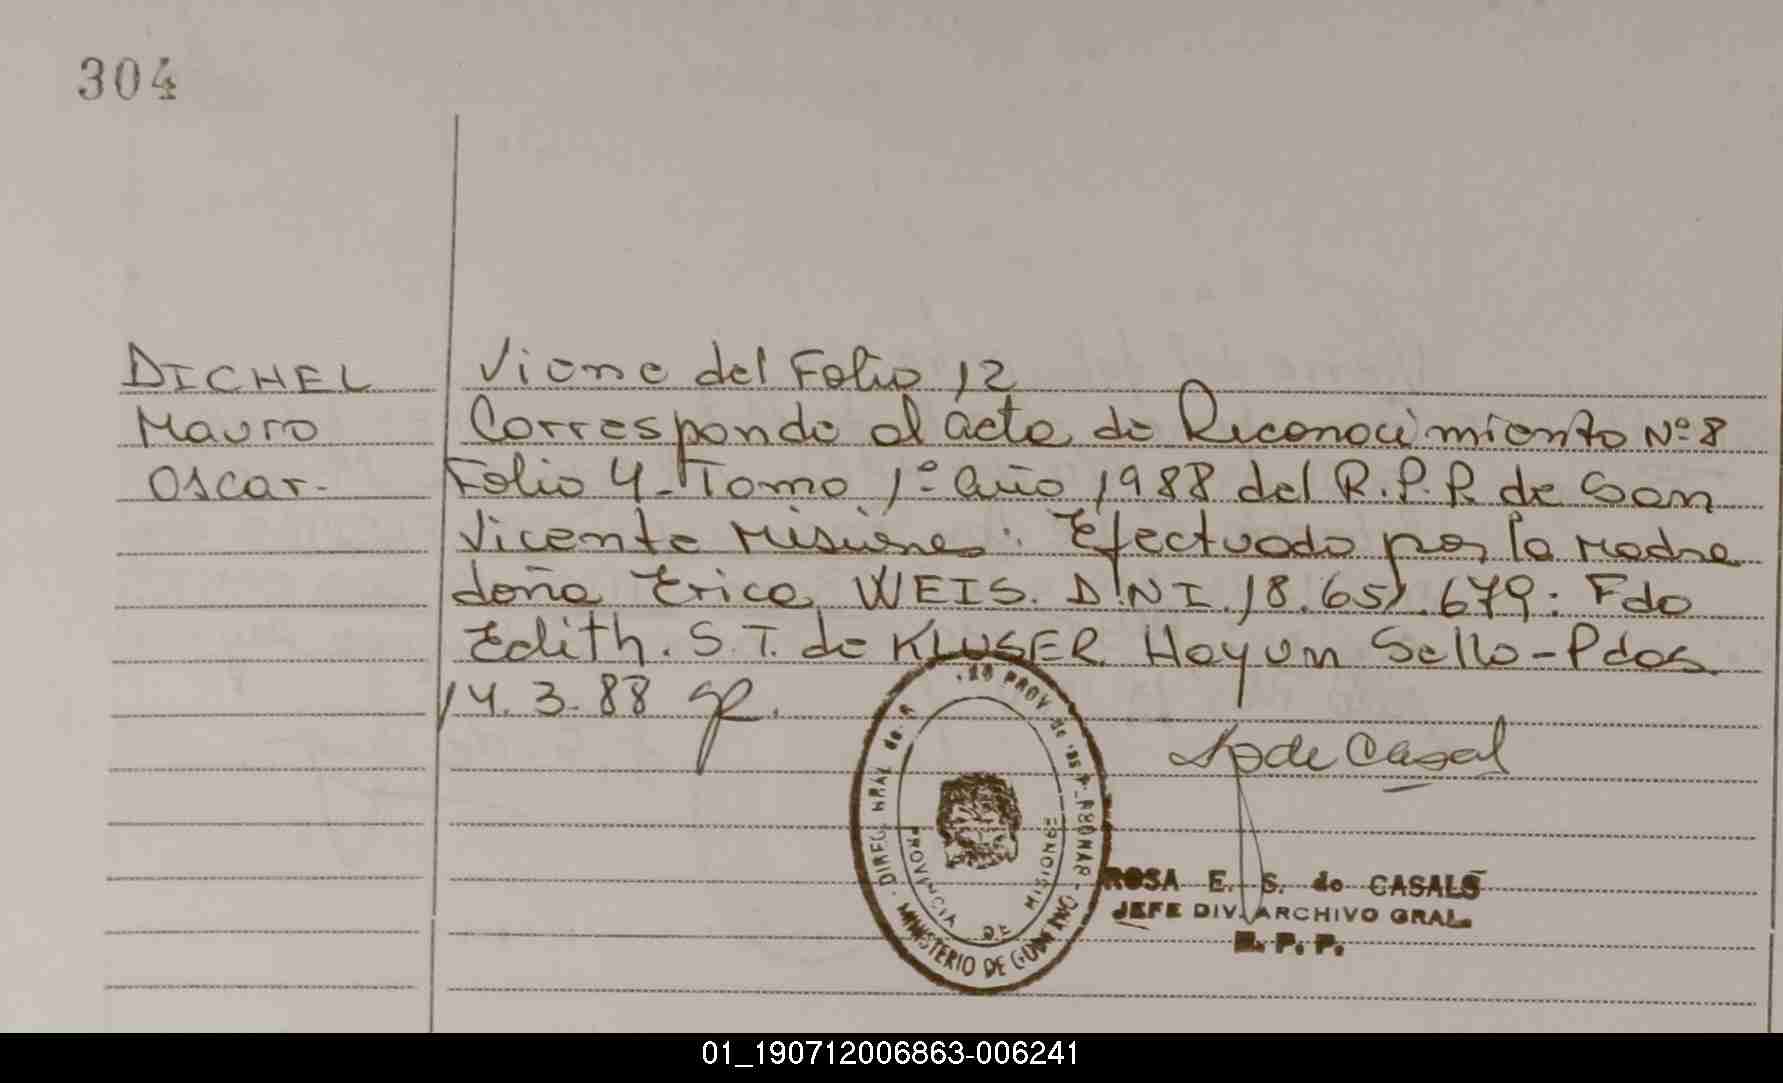 304
DICHEL
Mauro
Oscar.
Viene del Folio 12
Corresponde al acta de Reconocimiento Nº 8
Folio 4 - Tomo 1º año 1988 del R.P.P. de San
Vicente Misiones: Efectuado por la Madre
doña Erica WEIS. D.N.I. 18.651.679. Fdo
Edith. S.T. de KLUSER. Hay un Sello - Pdas
14.3.88
de Casal
MINISTERIO DE GOBIERNO
PROVINCIA DE MISIONES
ROSA E. S. de CASALS
JEFE DIV. ARCHIVO GRAL.
R. P. P.
01_190712006863-006241